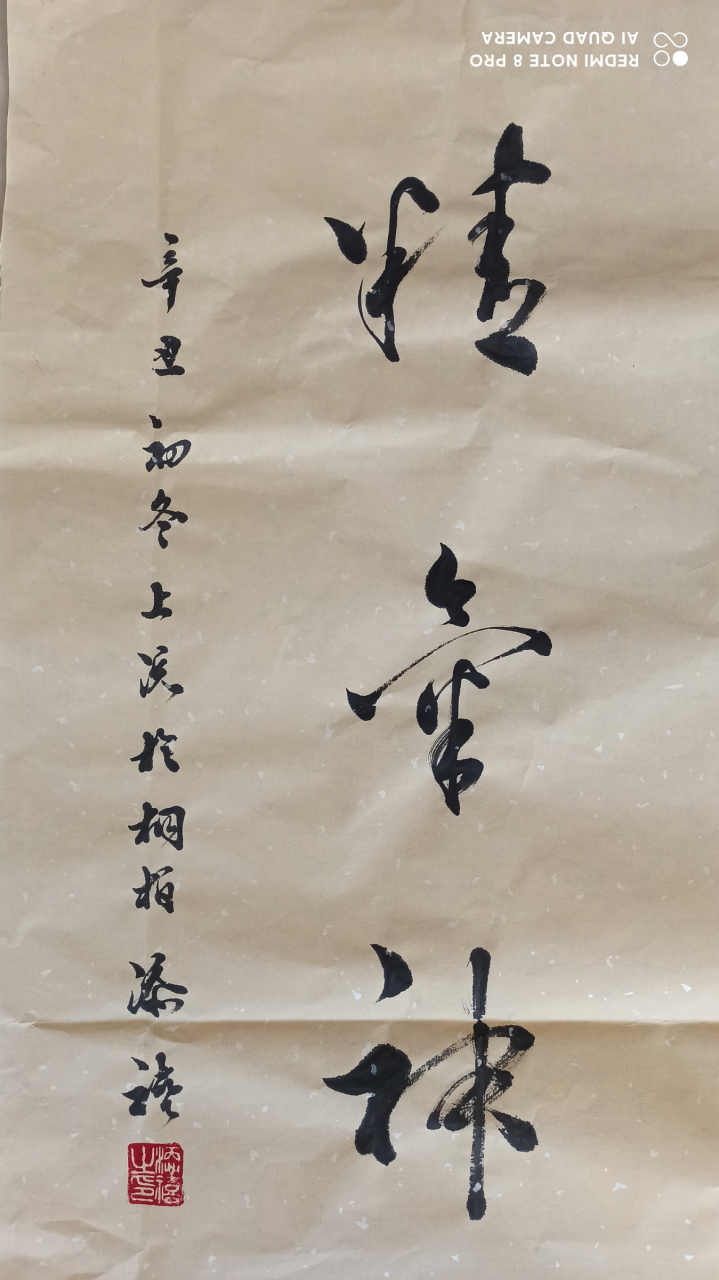 精氣神
辛丑初冬上浣於桐柏
REDMI NOTE 8 PRO
AI QUAD CAMERA